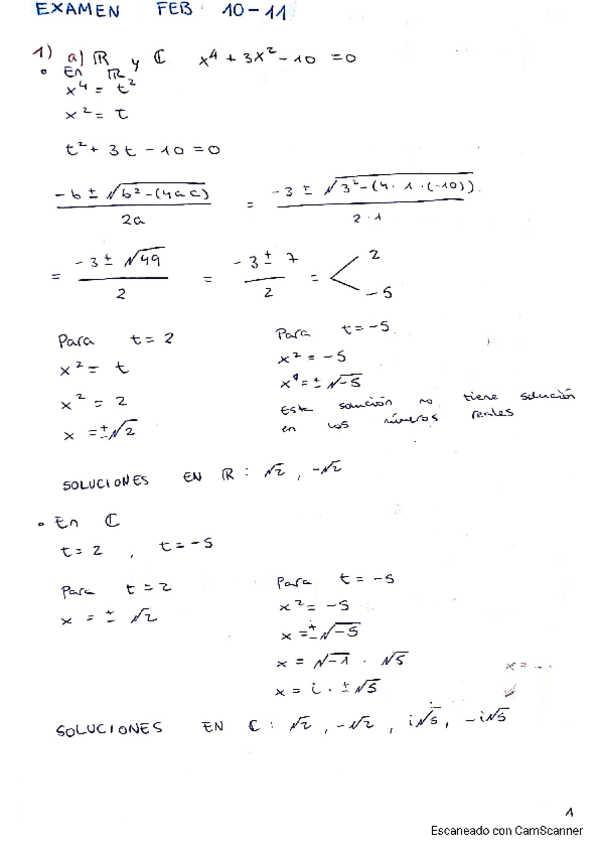 EXAMEN FEB 10-11
1) a) ℝ y ℂ x⁴ + 3x² - 10 = 0
• En ℝ
x⁴ = t²
x² = t
t² + 3t - 10 = 0
(-b ± √(b² - (4ac))) / 2a = (-3 ± √(3² - (4·1·(-10)))) / 2·1
= (-3 ± √49) / 2 = (-3 ± 7) / 2 = < 2
-5
Para t = 2
x² = t
x² = 2
x = ±√2
Para t = -5
x² = -5
x = ±√-5
Este solución no tiene solución
en los números reales
SOLUCIONES EN ℝ: √2, -√2
• En ℂ
t = 2, t = -5
Para t = 2
x = ± √2
Para t = -5
x² = -5
x = ±√-5
x = √-1 · √5
x = i · ±√5
x = ...
SOLUCIONES EN ℂ: √2, -√2, i√5, -i√5
1
Escaneado con CamScanner